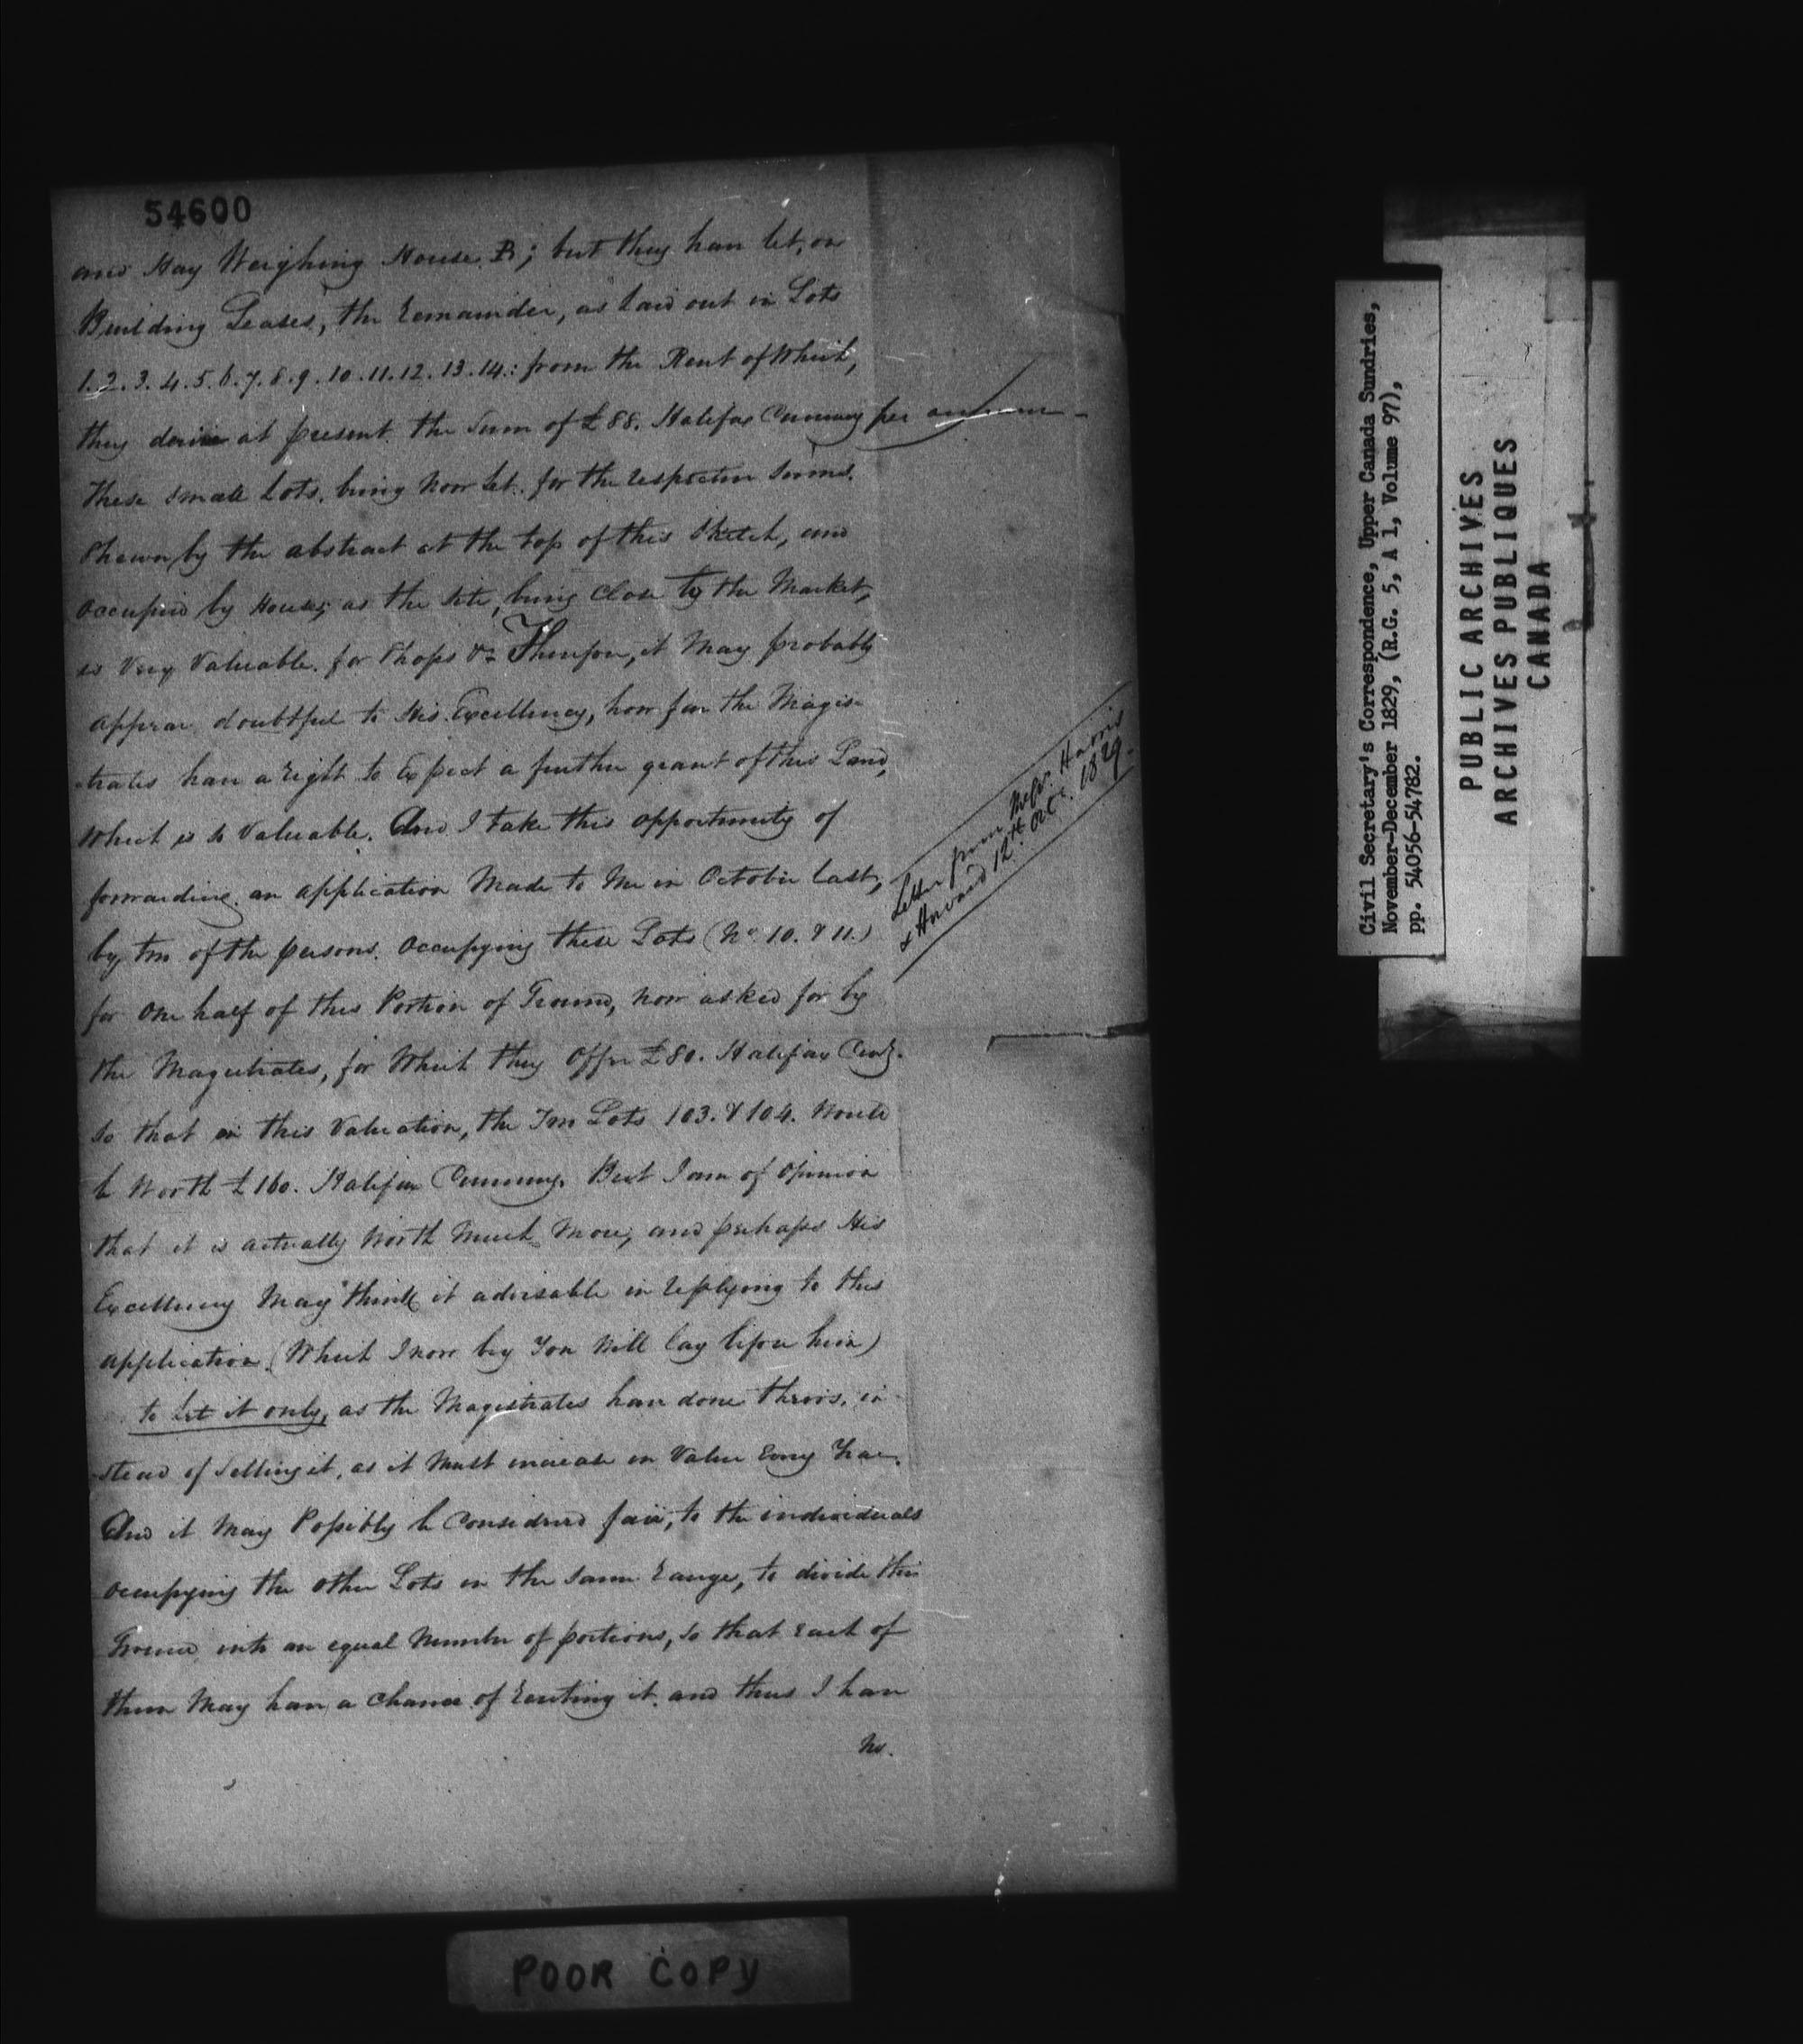 54600
and Hay Weighing House B; but they have let, on
Building Leases, the remainder, as laid out in Lots
1.2.3.4.5.6.7.8.9.10.11.12.13.14.: from the Rent of Which,
they derive at present the Sum of £88. Halifax Currency per annum –
These small Lots, being now let for the respective Sums
Shewn by the abstract at the top of this Sketch, and
occupied by Houses; as the site, being close to the Market,
is Very Valuable for Shops &c Therefore, it May probably
appear doubtful to His Excellency, how far the Magis-
-trates have a right to Expect a further grant of this Land,
Which is so Valuable. And I take this opportunity of
forwarding an application Made to Me in October last,
by two of the persons occupying these Lots (No. 10. & 11.)
for One half of this Portion of Ground, now asked for by
the Magistrates, for Which they Offer £80. Halifax Curcy.
So that on this Valuation, the Two Lots 103. & 104. Would
be Worth £160. Halifax Currency. But I am of opinion
that it is actually Worth Much More, and perhaps His
Excellency May think it advisable in replying to this
application (Which I now beg You Will lay before him)
to let it only, as the Magistrates have done theirs, in-
-stead of Selling it, as it Must increase in Value Every Year.
And it May Possibly be Considered fair, to the individuals
occupying the other Lots in the same range, to divide this
Ground into an equal Number of portions, so that each of
them May have a chance of renting it. and thus I have
no.
Letter from Messrs. Harris
& Howard 12th Octr. 1829.
Civil Secretary's Correspondence, Upper Canada Sundries,
November-December 1829, (R.G. 5, A 1, Volume 97),
pp. 54056-54782.
PUBLIC ARCHIVES
ARCHIVES PUBLIQUES
CANADA
POOR COPY